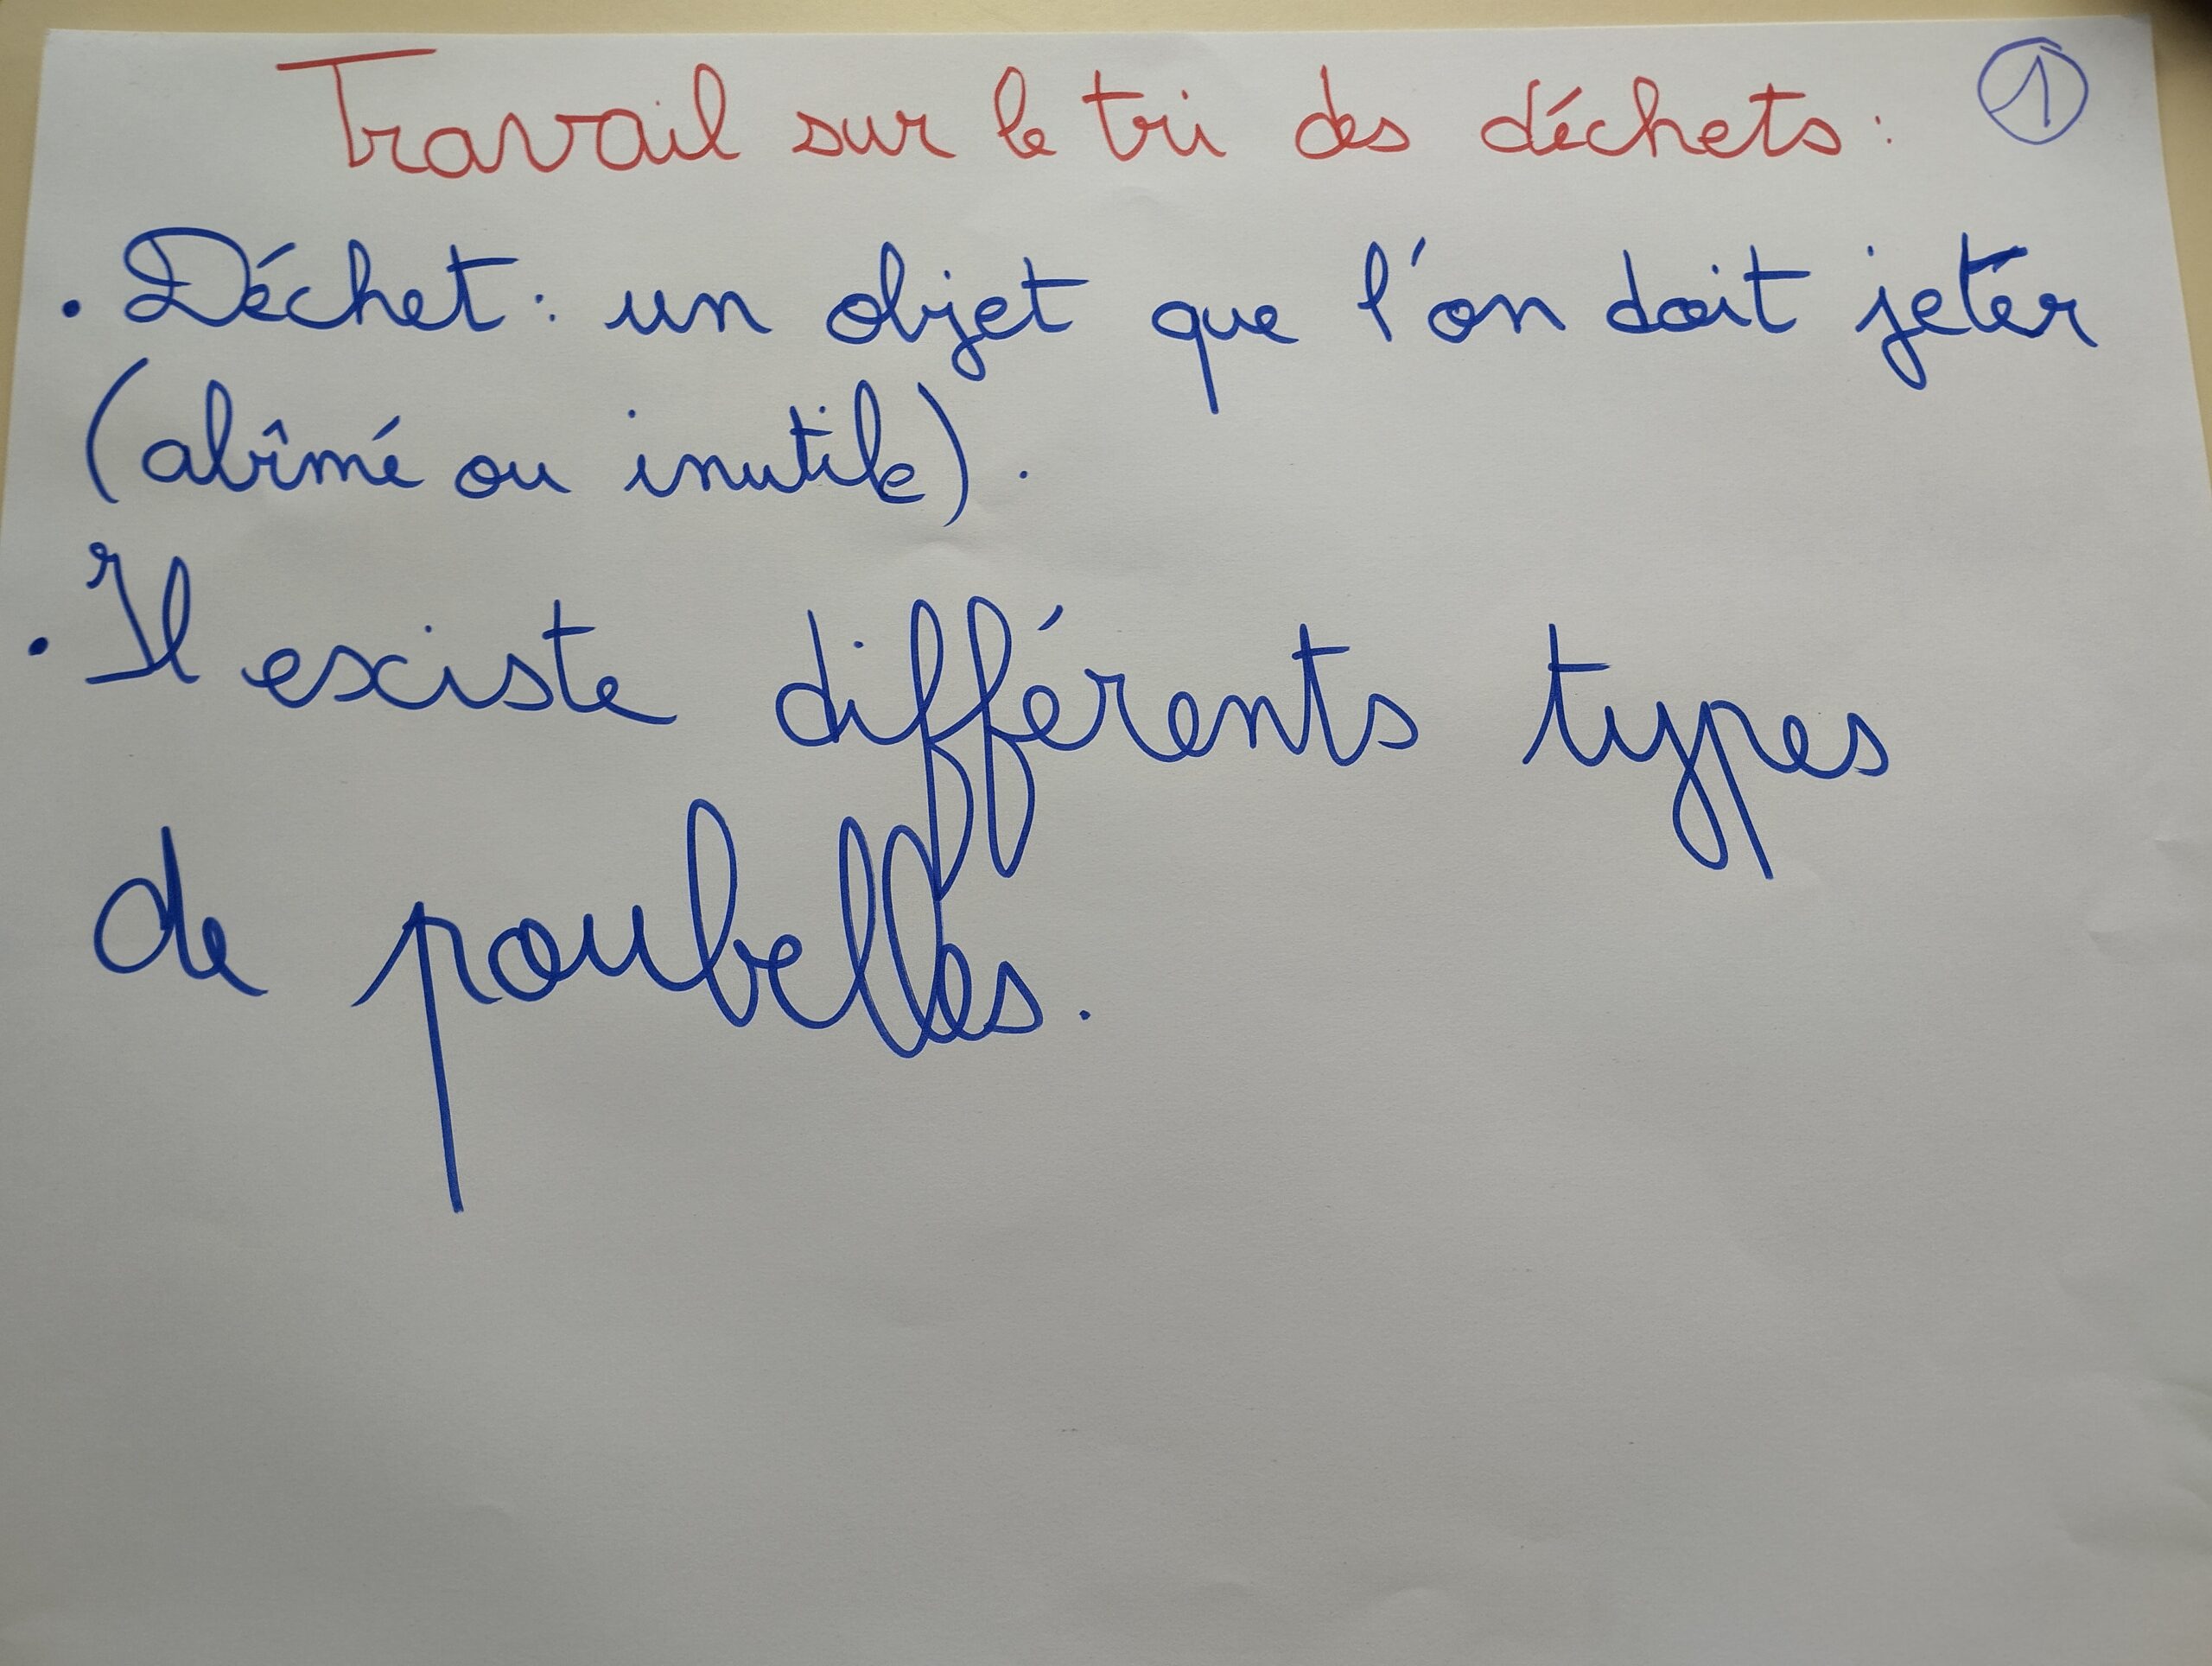 Travail sur le tri des déchets : 1
• Déchet : un objet que l'on doit jeter
(abîmé ou inutile).
• Il existe différents types
de poubelles.